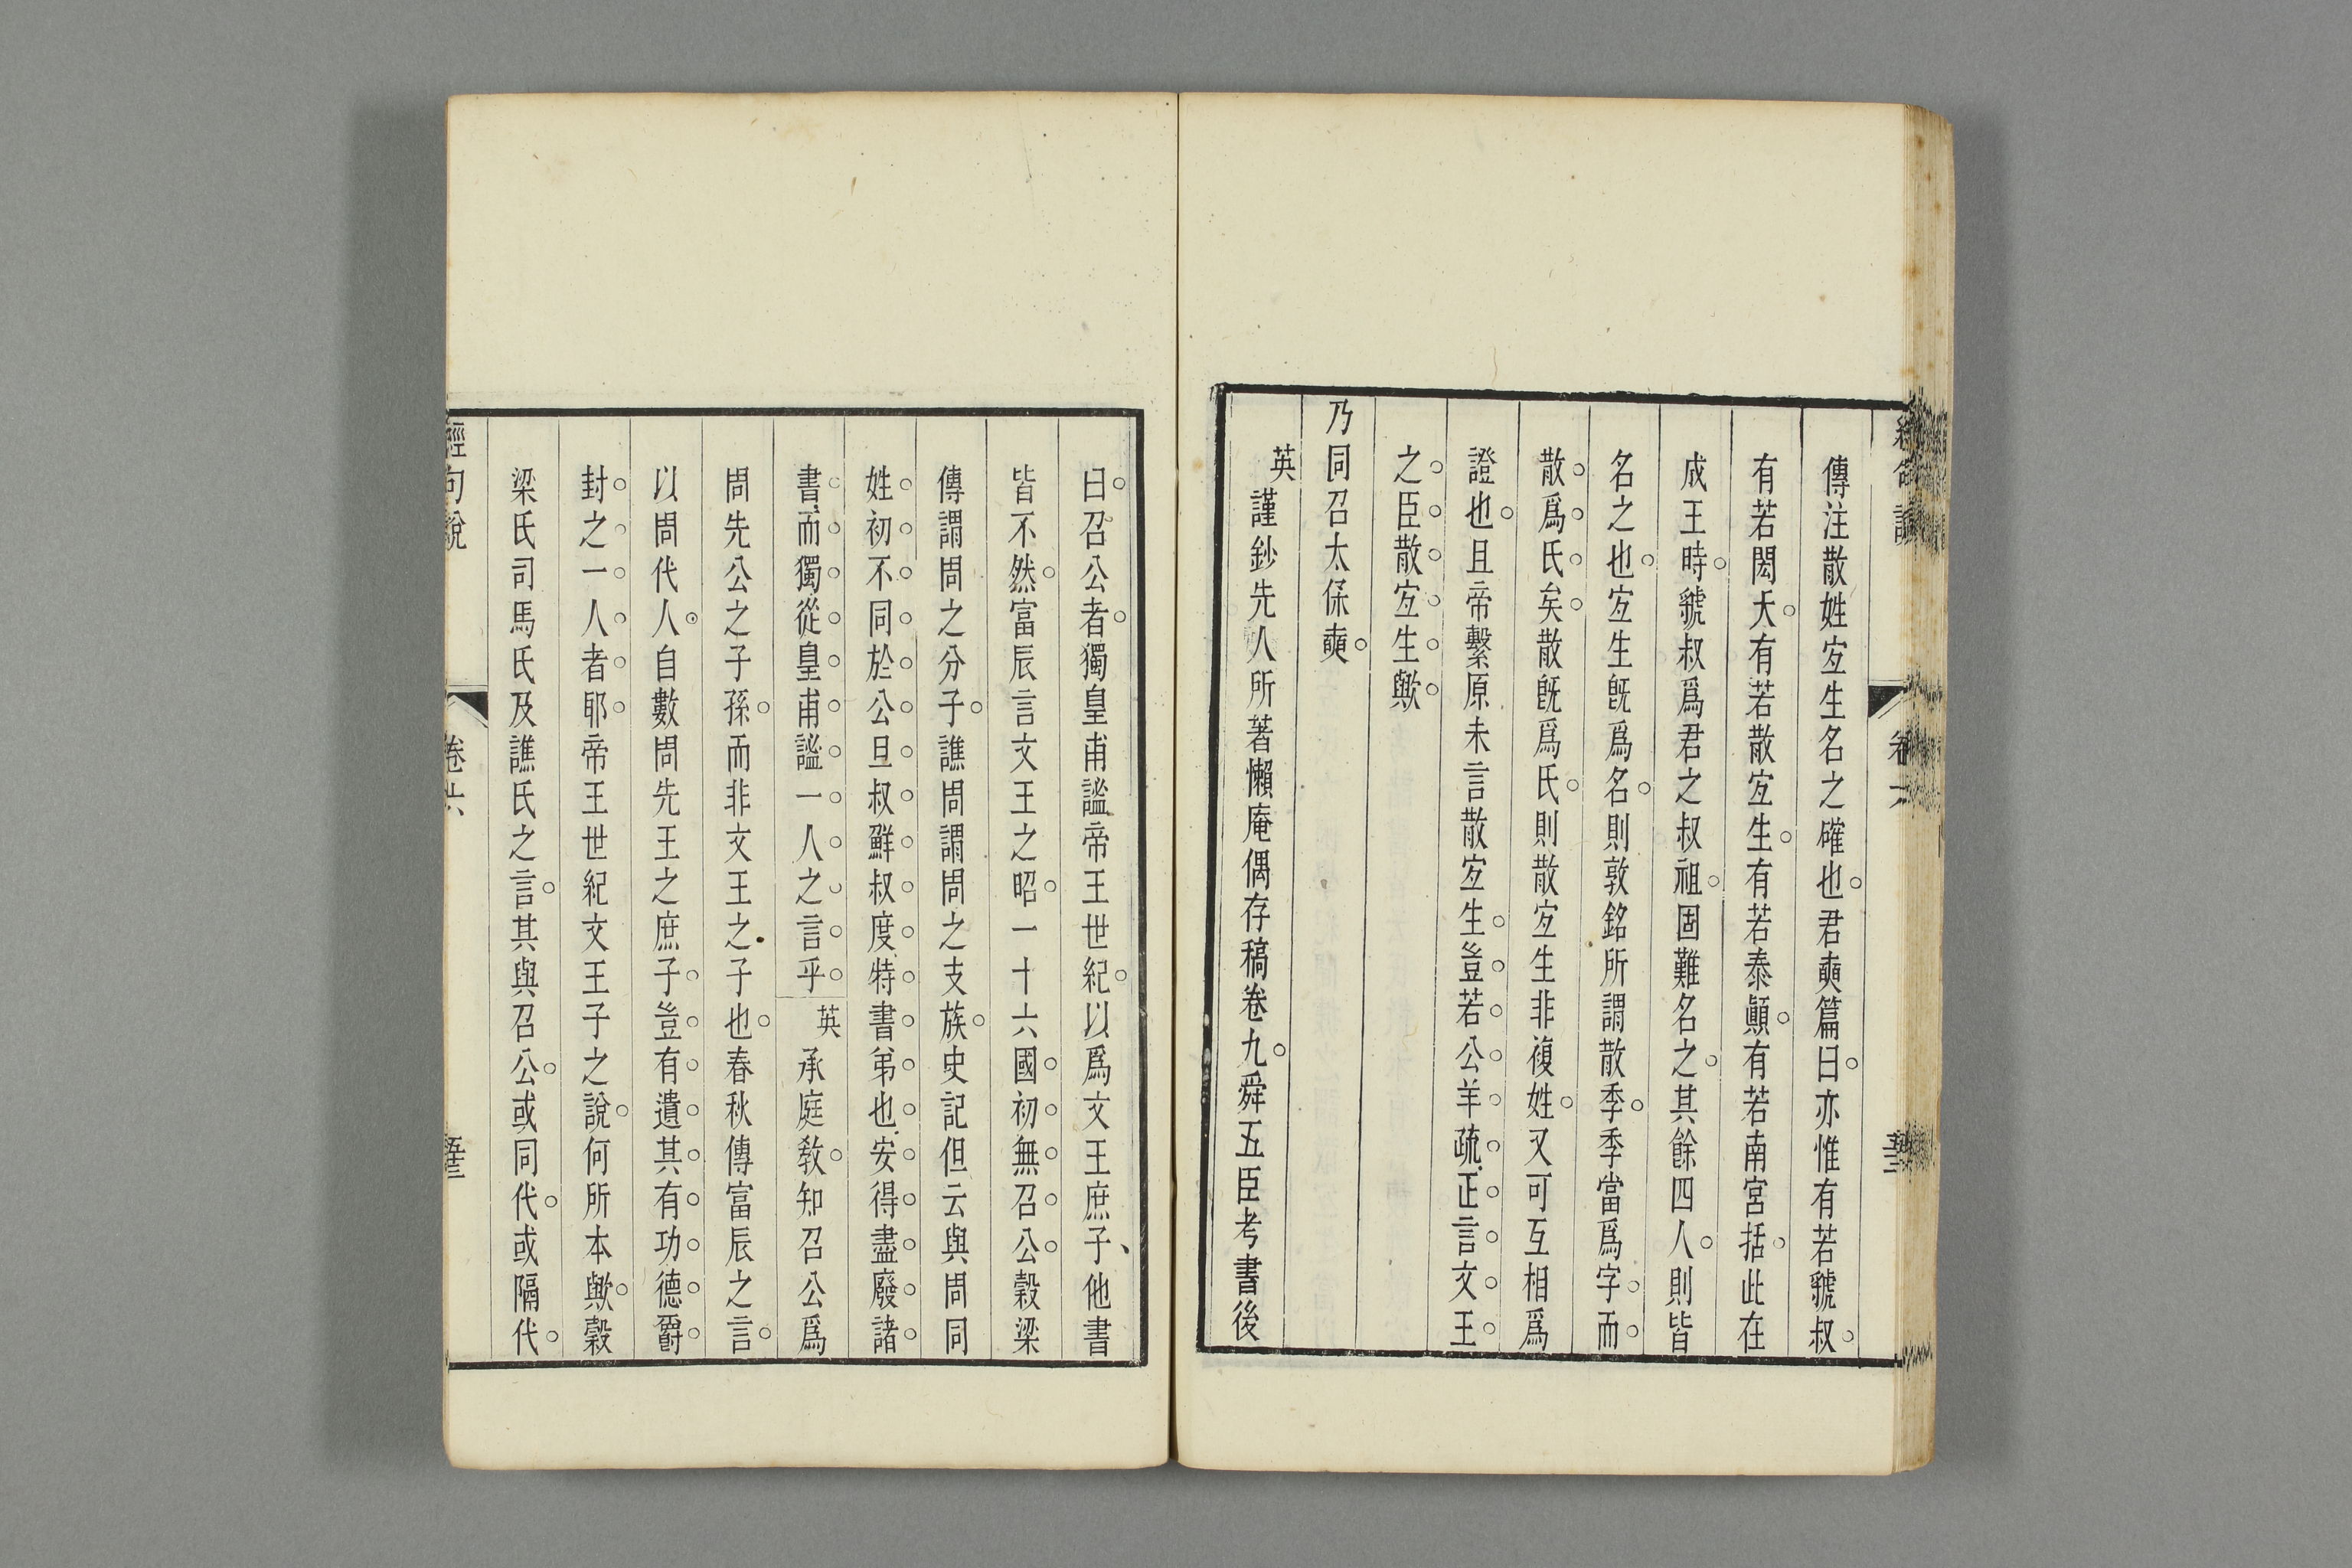 傳注散姓宐生名之確也君奭篇曰亦惟有若虢叔
有若閎夭有若散宐生有若泰顚有若南宮括此在
成王時虢叔爲君之叔祖固難名之其餘四人則皆
名之也宐生旣爲名則敦銘所謂散季季當爲字而
散爲氏矣散旣爲氏則散宐生非複姓又可互相爲
證也且帝繫原未言散宐生豈若公羊疏正言文王
之臣散宐生歟
乃同召太保奭
英謹鈔先人所著懶庵偶存稿卷九舜五臣考書後
曰召公者獨皇甫謐帝王世紀以爲文王庶子他書
皆不然富辰言文王之昭一十六國初無召公穀梁
傳謂周之分子譙周謂周之支族史記但云與周同
姓初不同於公旦叔鮮叔度特書弟也安得盡廢諸
書而獨從皇甫謐一人之言乎英承庭敎知召公爲
周先公之子孫而非文王之子也春秋傳富辰之言
以周代人自數周先王之庶子豈有遺其有功德爵
封之一人者耶帝王世紀文王子之說何所本歟穀
梁氏司馬氏及譙氏之言其與召公或同代或隔代
經句說
卷六